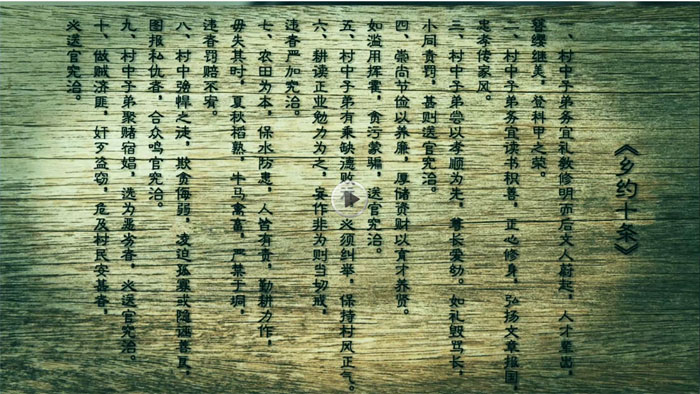 《乡约十条》
一、村中子弟务宜礼教修明而后文人蔚起，人才辈出，
簪缨继美，登科甲之荣。
二、村中子弟务宜读书积善，正心修身，弘扬文章报国，
忠孝传家风。
三、村中子弟尝以孝顺为先，尊长爱幼。如礼毁骂长，
小则责罚，甚则送官究治。
四、崇尚节俭以养廉，厚储资财以育才养贤。
如滥用挥霍，贪污蒙骗，送官究治。
五、村中子弟有乘缺德败 必须纠举，保持村风正气。
六、耕读正业勉力为之，妄作非为则当切戒，
违者严加究治。
七、农田为本，保水防患，人皆有责，勤耕力作，
毋失其时，夏秋稻熟，牛马禽畜，严禁于垌，
违者罚赔不宥。
八、村中强悍之徒，欺贪侮弱，凌迫孤寡或隐匿善良，
图报私仇者，合众鸣官究治。
九、村中子弟聚赌宿娼，选为恶劣者，必送官究治。
十、做贼济匪，奸歹盗窃，危及村民安甚者，
必送官究治。